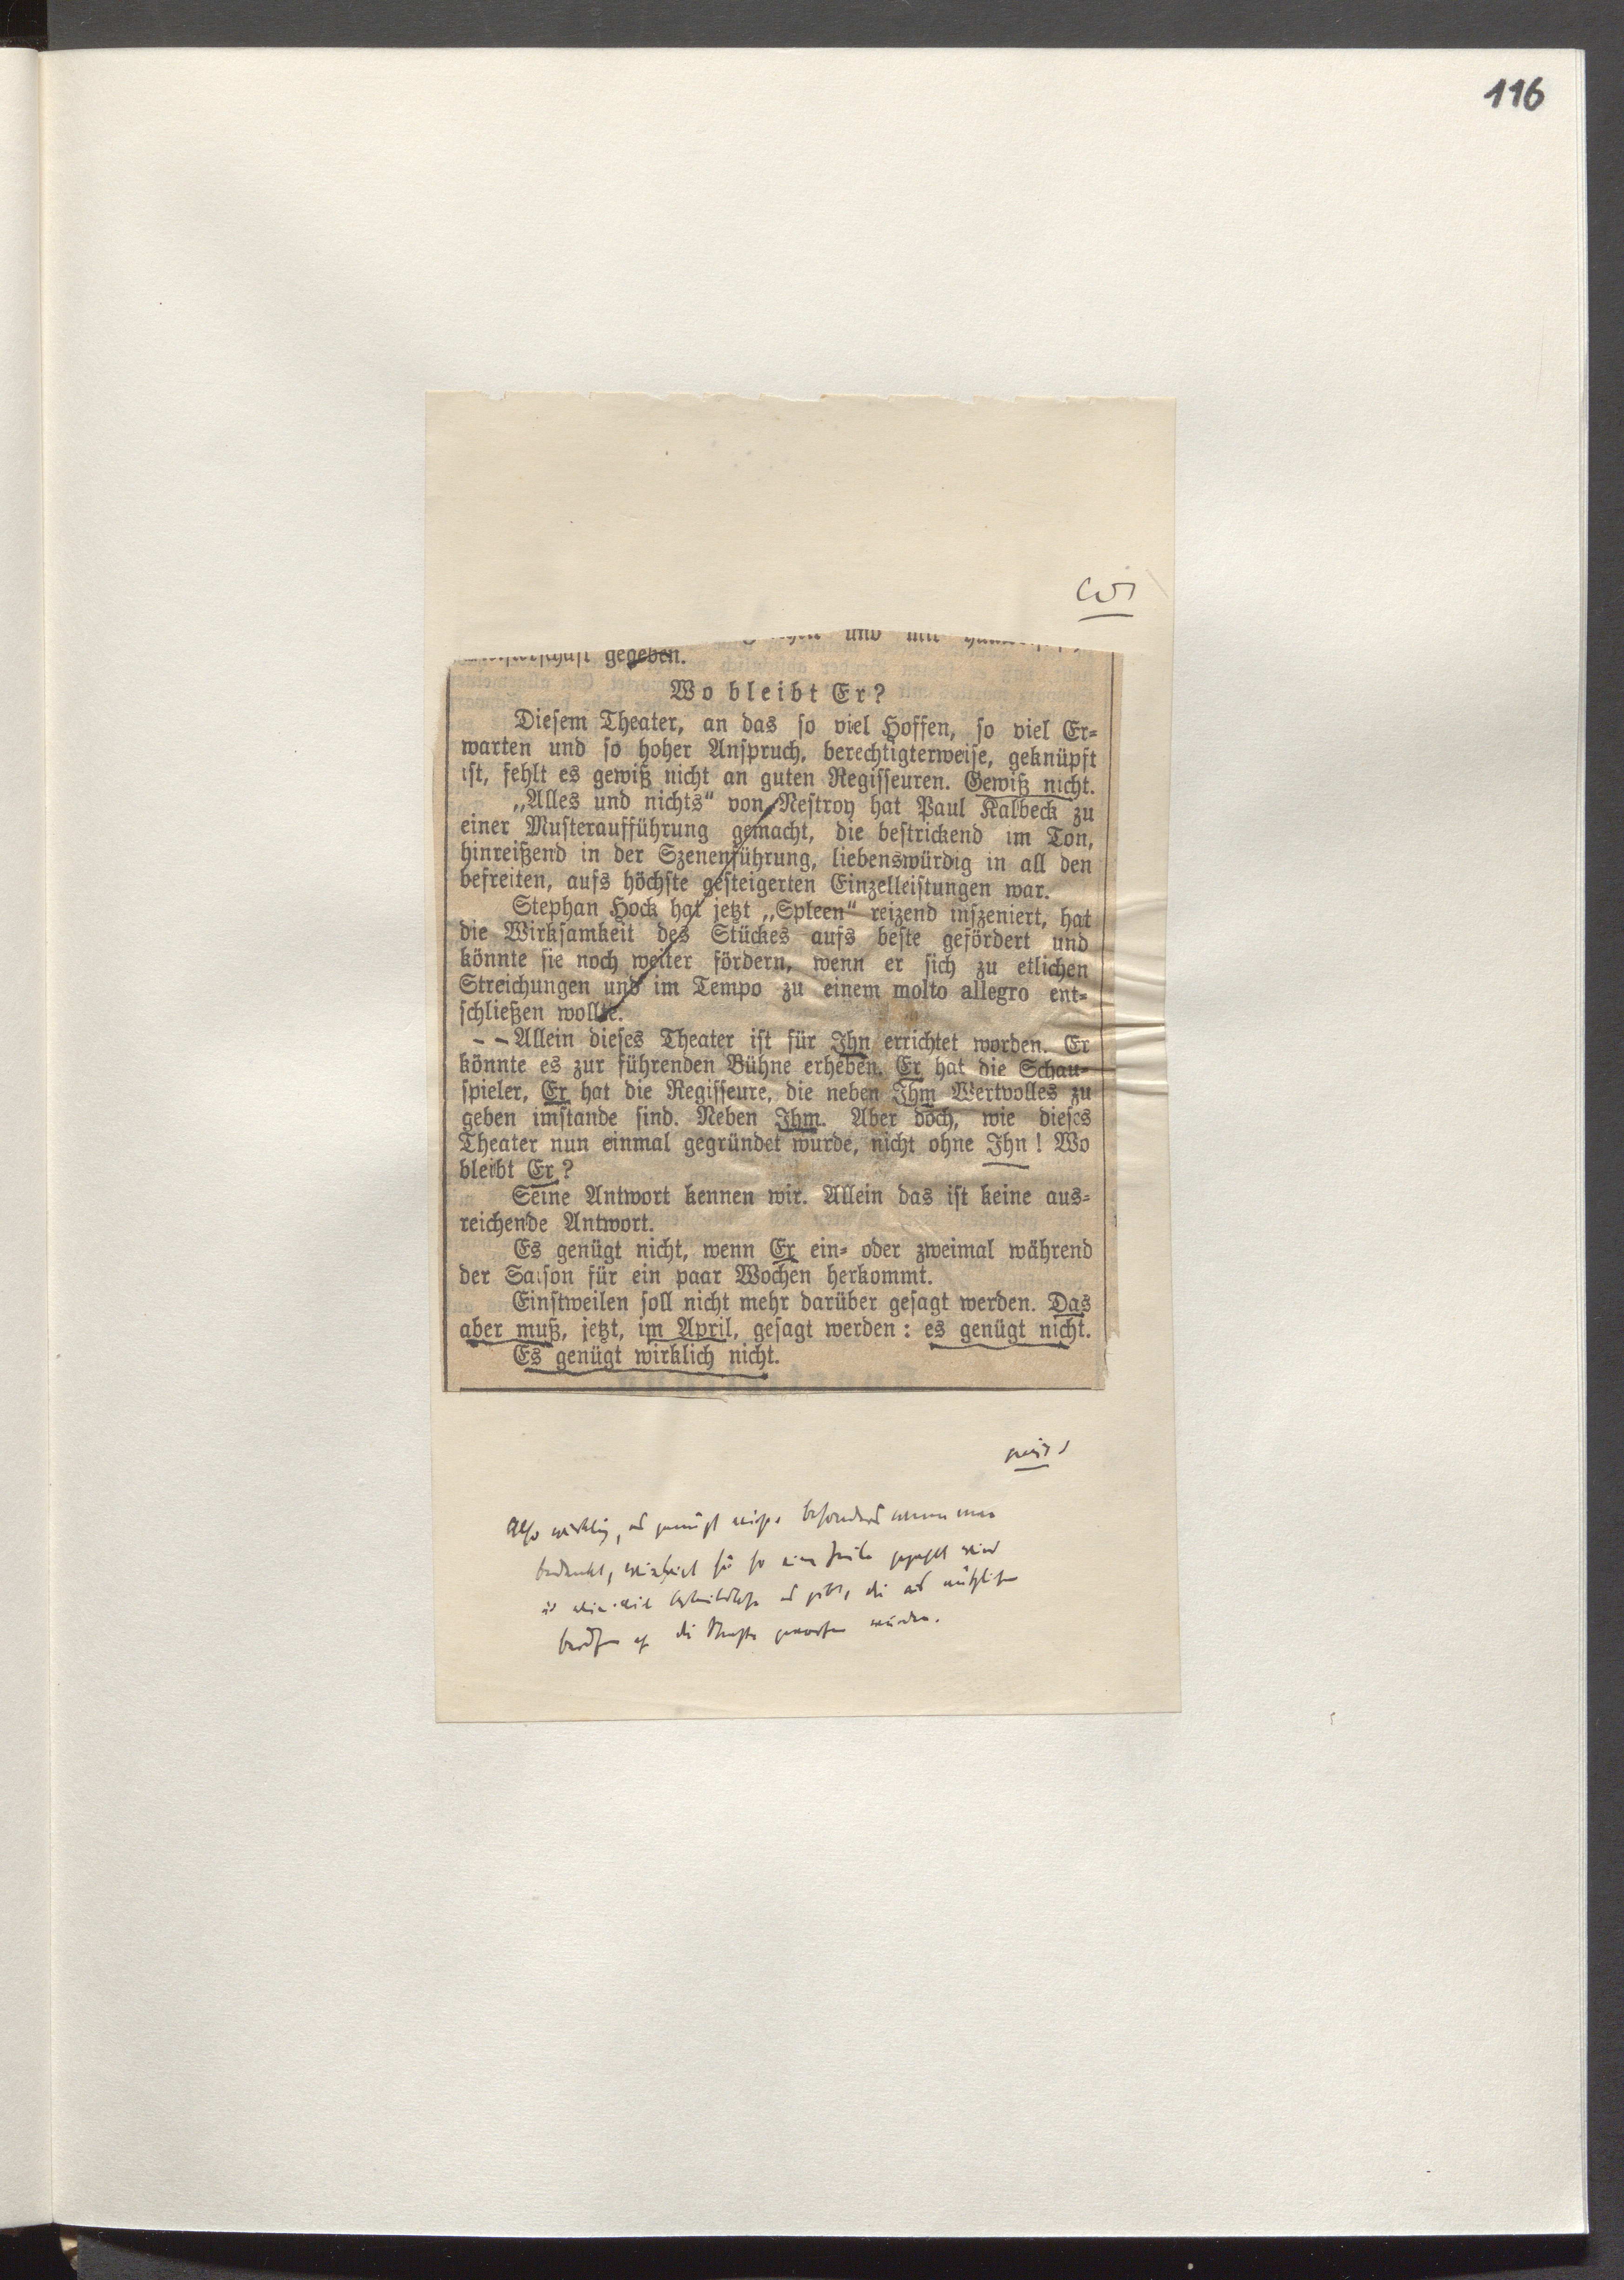 116
und mit
gegeben.
Wo bleibt Er?
Diesem Theater, an das so viel Hoffen, so viel Er-
warten und so hoher Anspruch, berechtigterweise, geknüpft
ist, fehlt es gewiß nicht an guten Regisseuren. Gewiß nicht.
„Alles und nichts“ von Nestroy hat Paul Kalbeck zu
einer Musteraufführung gemacht, die bestrickend im Ton,
hinreißend in der Szenenführung, liebenswürdig in all den
befreiten, aufs höchste gesteigerten Einzelleistungen war.
Stephan Hock hat jetzt „Spleen“ reizend inszeniert, hat
die Wirksamkeit des Stückes aufs beste gefördert und
könnte sie noch weiter fördern, wenn er sich zu etlichen
Streichungen und im Tempo zu einem molto allegro ent-
schließen wollte.
-- Allein dieses Theater ist für Ihn errichtet worden. Er
könnte es zur führenden Bühne erheben. Er hat die Schau-
spieler, Er hat die Regisseure, die neben Ihm Wertvolles zu
geben imstande sind. Neben Ihm. Aber doch, wie dieses
Theater nun einmal gegründet wurde, nicht ohne Ihn! Wo
bleibt Er?
Seine Antwort kennen wir. Allein das ist keine aus-
reichende Antwort.
Es genügt nicht, wenn Er ein- oder zweimal während
der Saison für ein paar Wochen herkommt.
Einstweilen soll nicht mehr darüber gesagt werden. Das
aber muß, jetzt, im April, gesagt werden: es genügt nicht.
Es genügt wirklich nicht.
Also wirklich, es genügt nicht, besonders wenn man
bedenkt, wieviel für so eine Zeile gezahlt wird
die
die